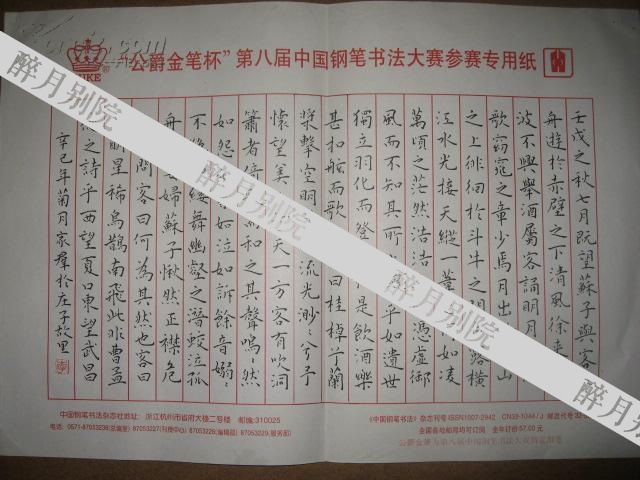 NIKE
“公爵金笔杯”第八届中国钢笔书法大赛参赛专用纸
壬戌之秋七月既望蘇子與客
舟遊於赤壁之下清風徐來
波不興舉酒屬客誦明月
歌窈窕之章少焉月出 山
之上徘徊於斗牛之間 露橫
江水光接天縱一葦 如凌
萬頃之茫然浩浩 憑虛御
風而不知其所 乎如遺世
獨立羽化而登 是飲酒樂
甚扣舷而歌 曰桂棹兮蘭
槳擊空明 流光渺〻兮予
懷望美 天一方客有吹洞
簫者倚 而和之其聲嗚然
如怨 如泣如訴餘音嫋〻
不絕 縷舞幽壑之潛蛟泣孤
舟 婦蘇子愀然正襟危
問客曰何為其然也客曰
星稀烏鵲南飛此非曹孟
之詩乎西望夏口東望武昌
辛巳年菊月家羣於庄子故里
中国钢笔书法杂志社地址: 浙江杭州市省府大楼二号楼 邮编:310025
电话: 0571-87053236(总编室) 87053227(刊授中心) 87053228(编辑部) 87053229(服务部)
《中国钢笔书法》杂志刊号 ISSN1007-2942 CN33-1044/J 邮发代号 32-
全国各地邮局均可订阅 全年订价57.00元
公爵金笔为第八届中国钢笔书法大赛指定用笔
醉月别院
醉月别院
醉月别院
醉月别院